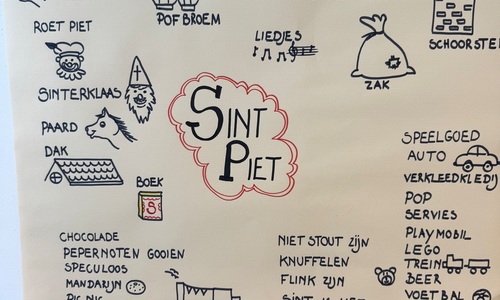 ROET PIET
POFBROEM
LIEDJES
SCHOORSTE
ZAK
SINTERKLAAS
PAARD
DAK
BOEK
S
SINT
PIET
SPEELGOED
AUTO
VERKLEEDKLEDIJ
POP
SERVIES
PLAYMOBIL
LEGO
TREIN
BEER
VOETBAL
CHOCOLADE
PEPERNOTEN GOOIEN
SPECULOOS
MANDARIJN
PIC NIC
NIET STOUT ZIJN
KNUFFELEN
FLINK ZIJN